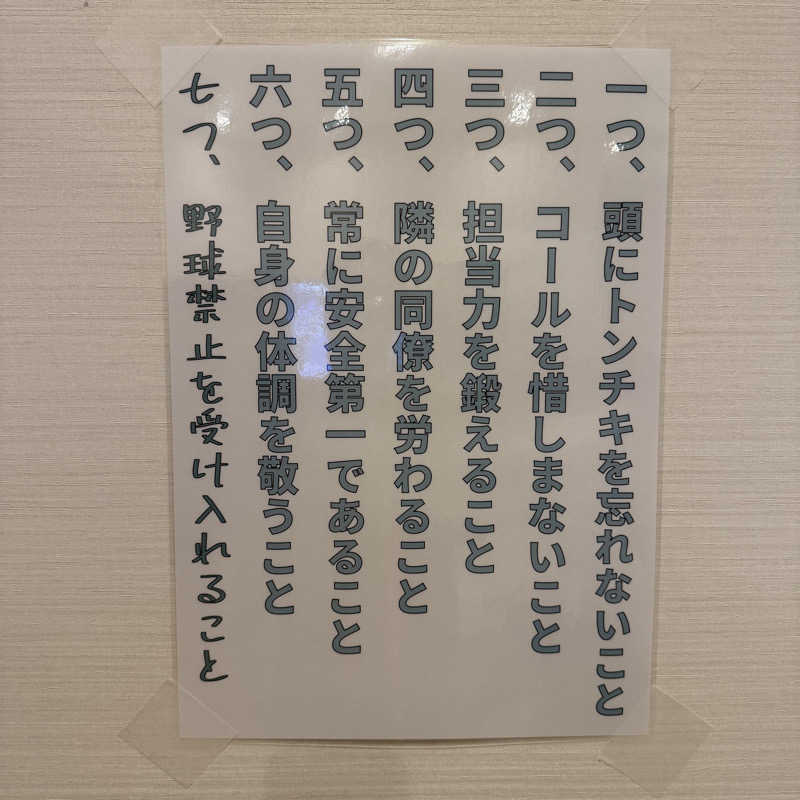 一つ、頭にトンチキを忘れないこと
二つ、コールを惜しまないこと
三つ、担当力を鍛えること
四つ、隣の同僚を労わること
五つ、常に安全第一であること
六つ、自身の体調を敬うこと
七つ、野球禁止を受け入れること